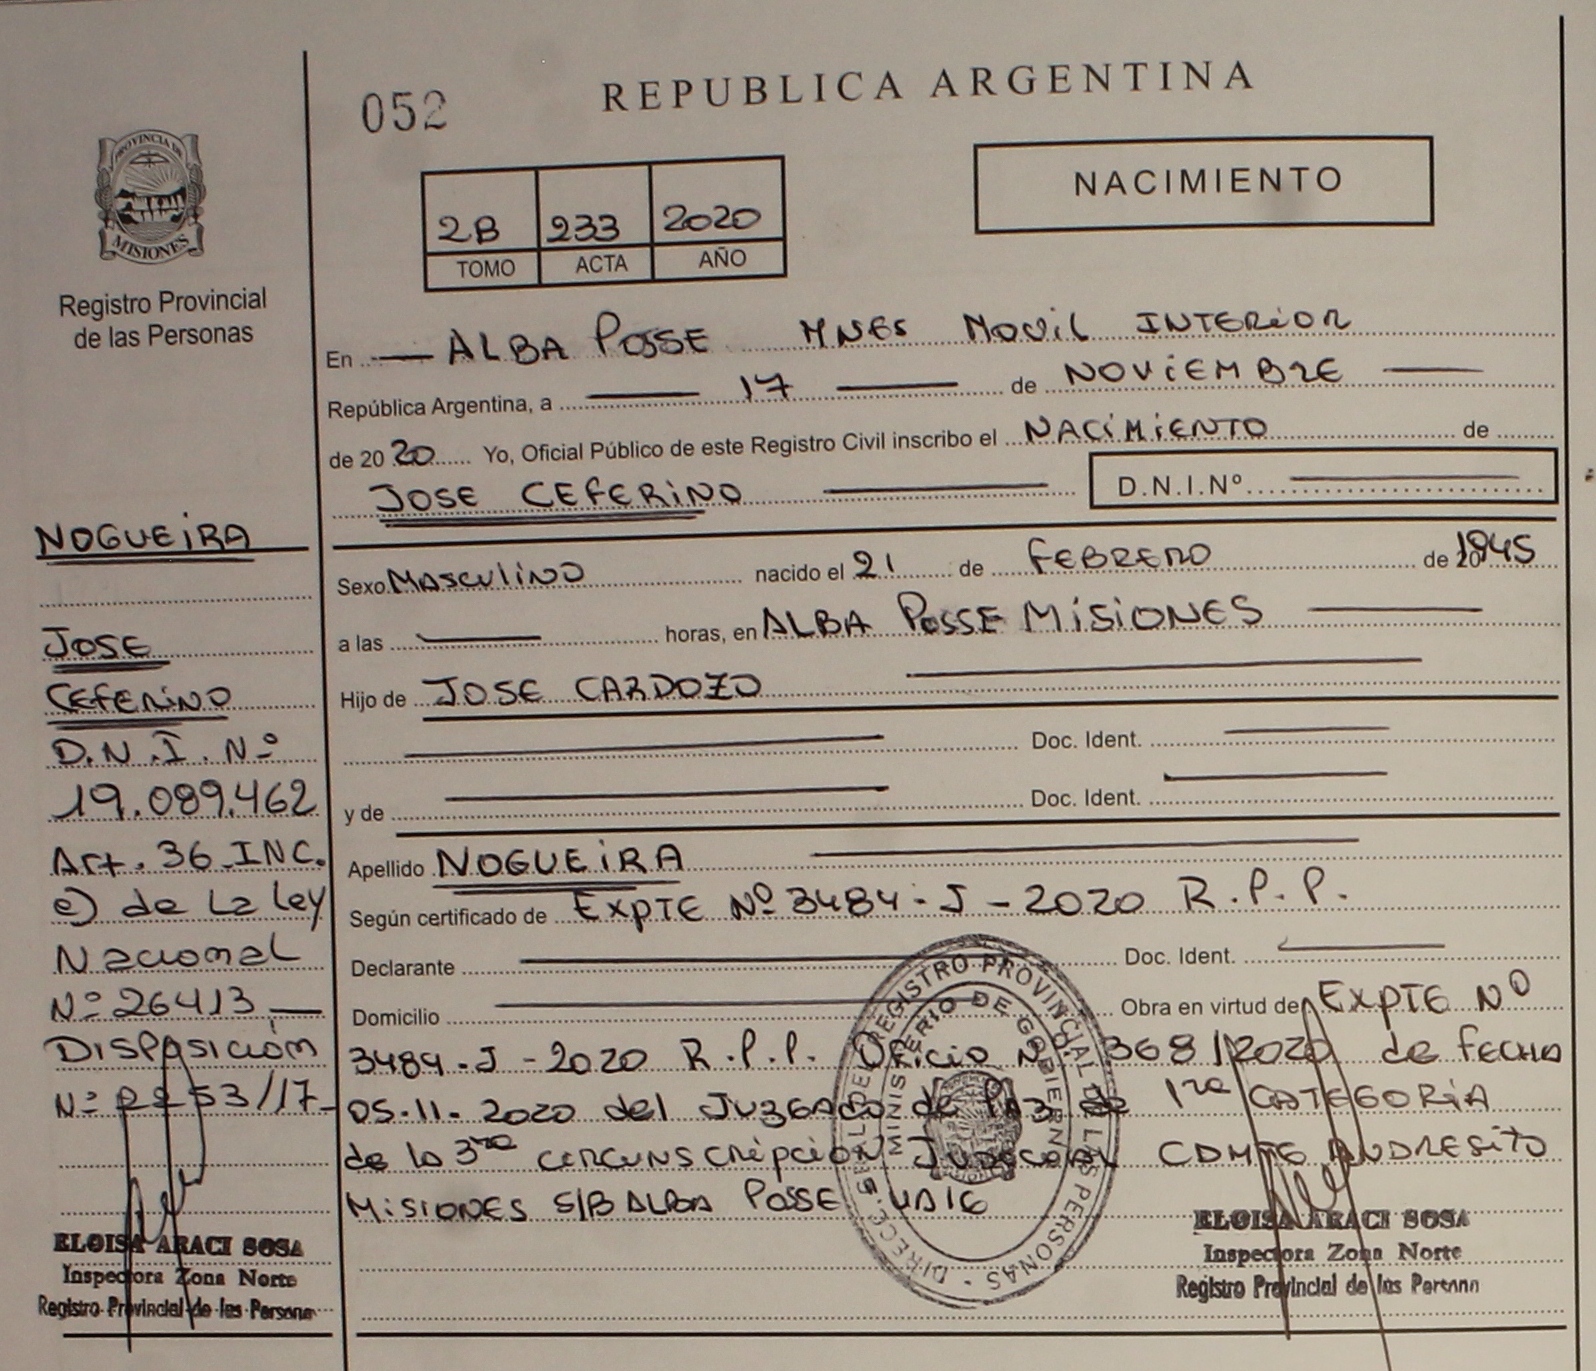 052
REPUBLICA ARGENTINA
PROVINCIA DE
MISIONES
Registro Provincial
de las Personas
2B 233 2020
TOMO ACTA AÑO
NACIMIENTO
En ALBA POSSE MNES MOVIL INTERIOR
República Argentina, a 17 de NOVIEMBRE
de 2020 Yo, Oficial Público de este Registro Civil inscribo el NACIMIENTO de
JOSE CEFERINO D.N.I.Nº
Sexo MASCULINO nacido el 21 de FEBRERO de 1945
a las horas, en ALBA POSSE MISIONES
Hijo de JOSE CARDOZO
Doc. Ident.
y de Doc. Ident.
Apellido NOGUEIRA
Según certificado de EXPTE Nº 3484-J-2020 R.P.P.
Declarante Doc. Ident.
Domicilio Obra en virtud de EXPTE Nº
3484-J-2020 R.P.P. Oficio Nº 368/2020 de FECHA
05-11-2020 del JUZGADO de PAZ de 1ra CATEGORIA
de la 3ra CIRCUNSCRIPCIÓN JUDICIAL CDMTE ANDRESITO
MISIONES S/B ALBA POSSE
NOGUEIRA
JOSE
CEFERINO
D.N.I. Nº
19.089.462
Art. 36 INC.
e) de La Ley
Nacional
Nº 26413
DISPOSICIÓN
ELOISA ARACI SOSA
Inspectora Zona Norte
Registro Provincial de las Persona
DIRECC. GRAL DEL REGISTRO PROVINCIAL DE LAS PERSONAS
MINISTERIO DE GOBIERNO
ELOISA ARACI SOSA
Inspectora Zona Norte
Registro Provincial de las Persona